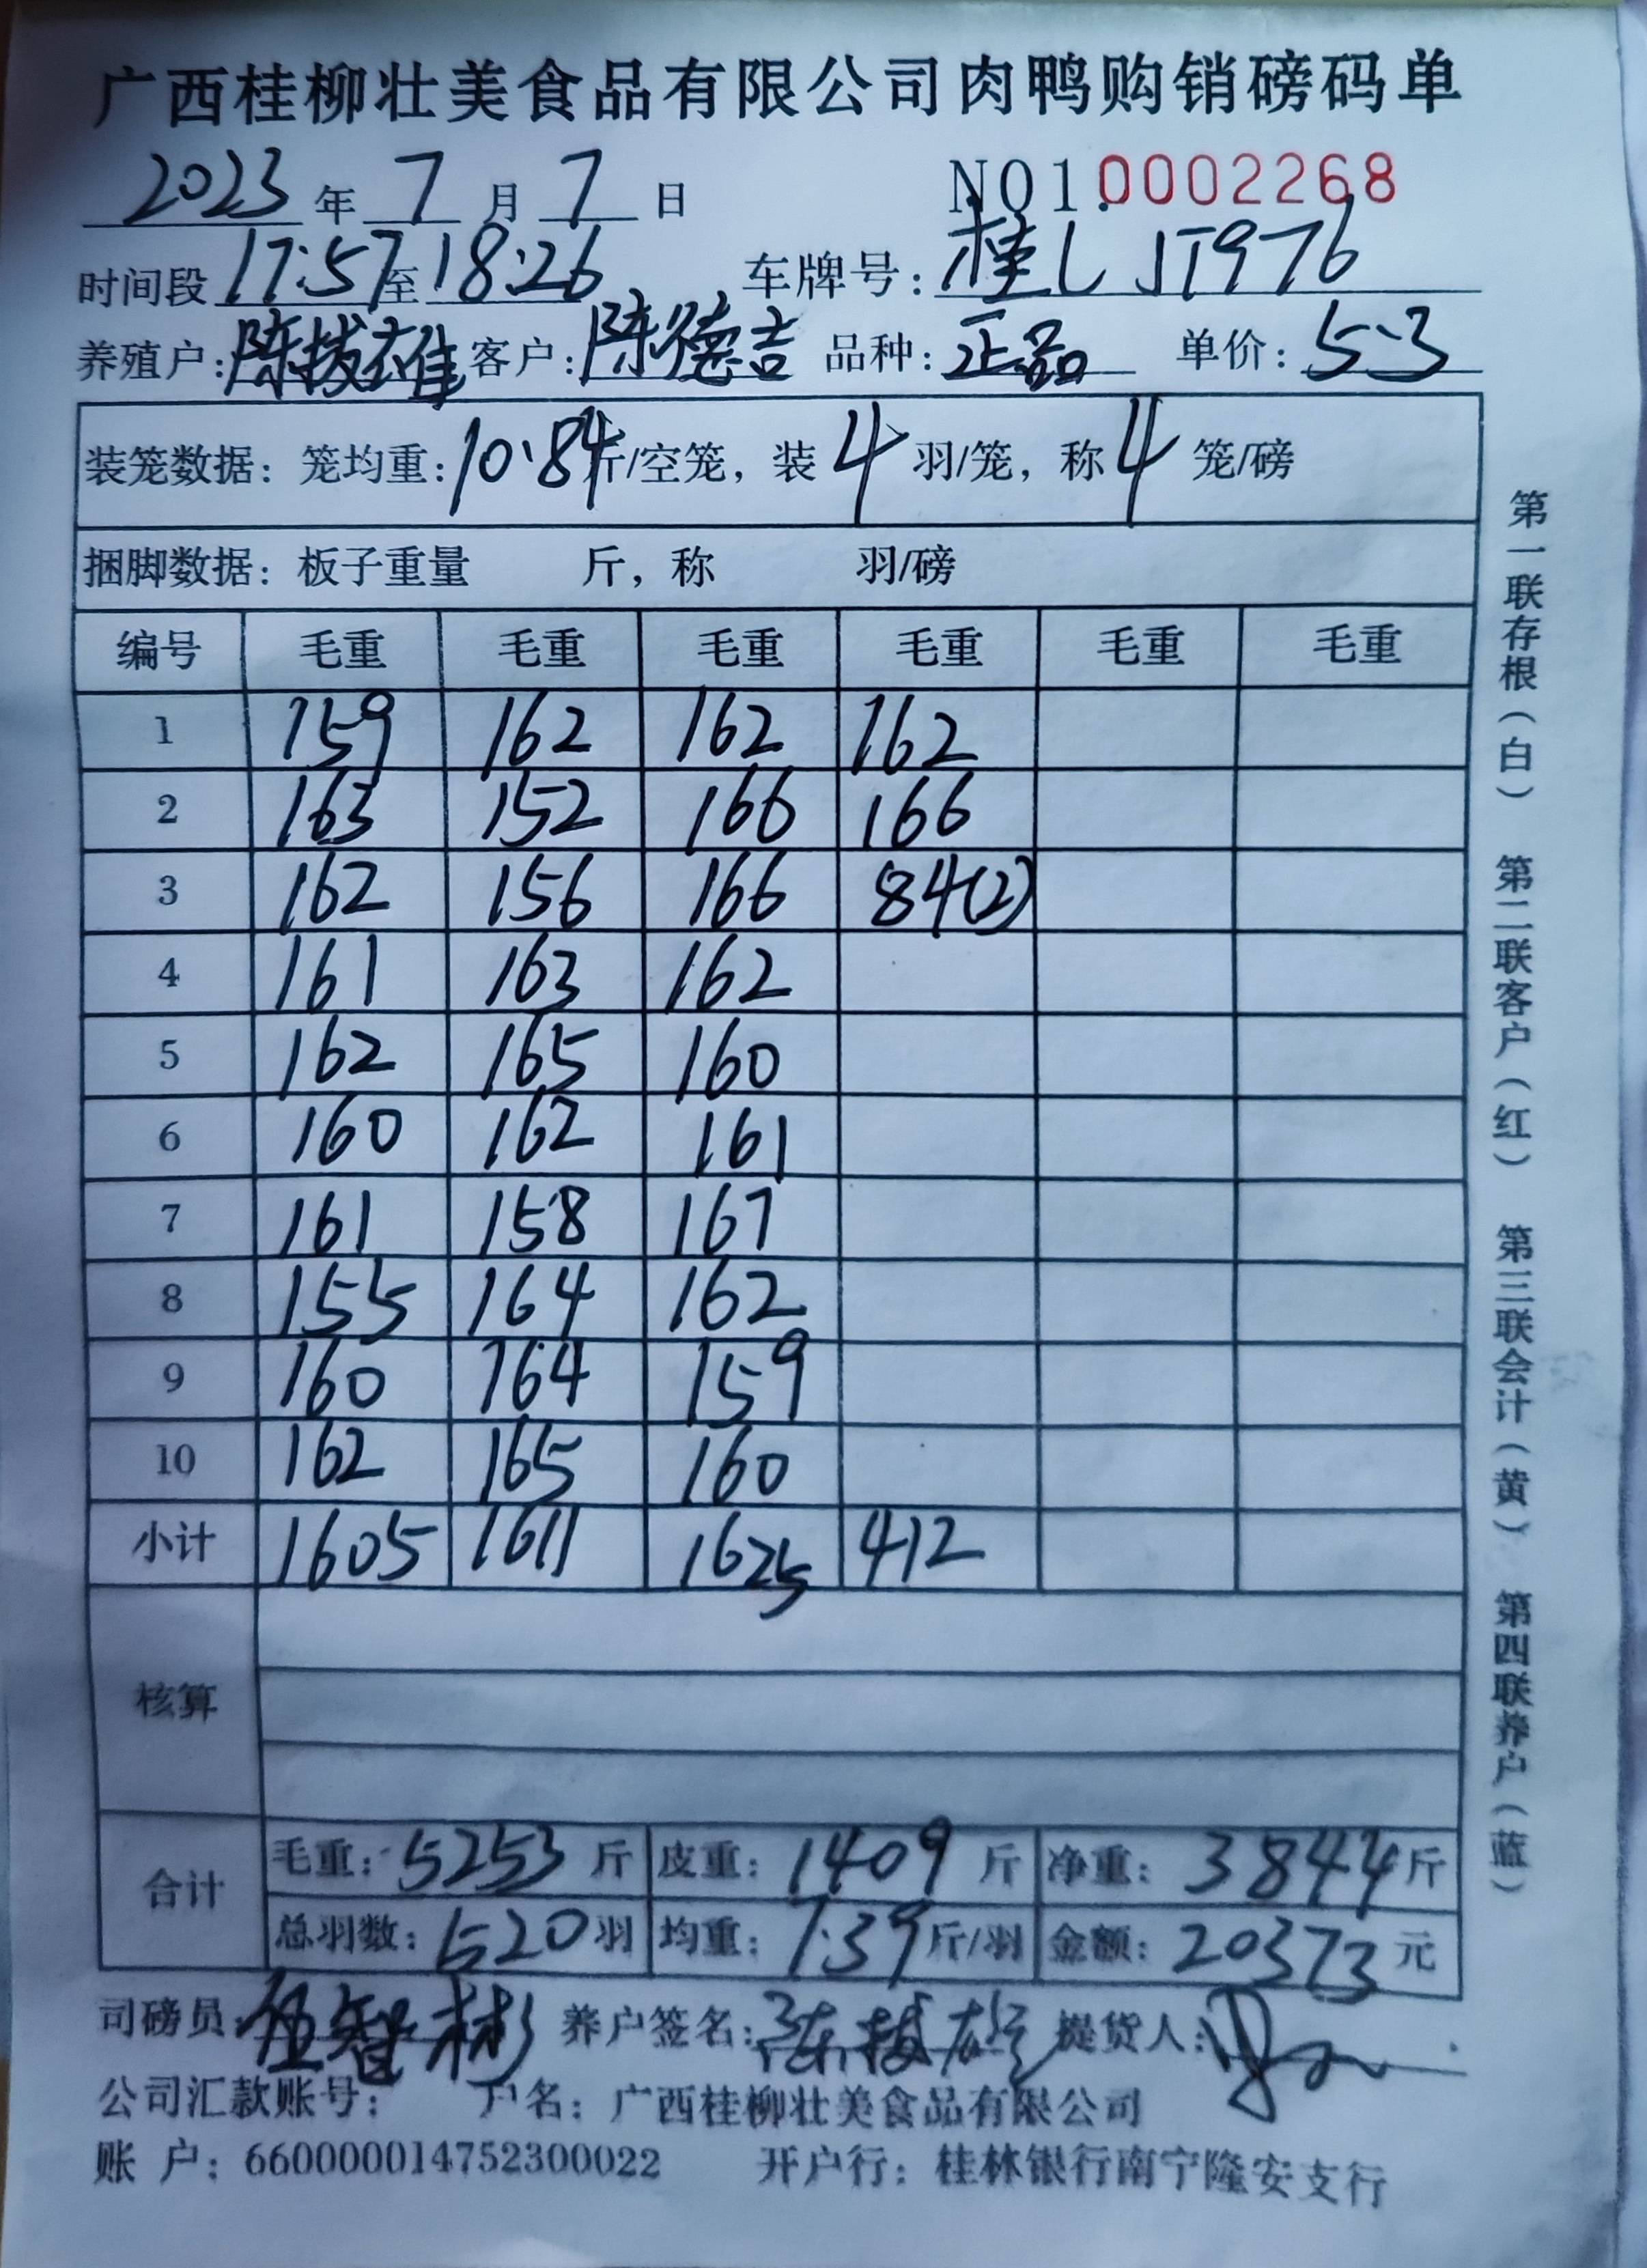 广西桂柳壮美食品有限公司肉鸭购销磅码单
2023年7月7日 NO1.0002268
时间段17:57至18:26 车牌号:桂L JT976
养殖户:陈拔雄 客户:陈德吉 品种:正品 单价:5.3
装笼数据:笼均重:10.84斤/空笼,装4羽/笼,称4笼/磅
捆脚数据:板子重量 斤,称 羽/磅
编号 毛重 毛重 毛重 毛重 毛重 毛重
1 159 162 162 162
2 163 152 166 166
3 162 156 166 84(2)
4 161 163 162
5 162 165 160
6 160 162 161
7 161 158 167
8 155 164 162
9 160 164 159
10 162 165 160
小计 1605 1611 1625 412
核算
合计 毛重:5253斤 皮重:1409斤 净重:3844斤
总羽数:520羽 均重:7.39斤/羽 金额:20373元
司磅员:伍智彬 养户签名:陈拔雄 提货人:
公司汇款账号: 户名:广西桂柳壮美食品有限公司
账 户:660000014752300022 开户行:桂林银行南宁隆安支行
第一联存根(白) 第二联客户(红) 第三联会计(黄) 第四联养户(蓝)